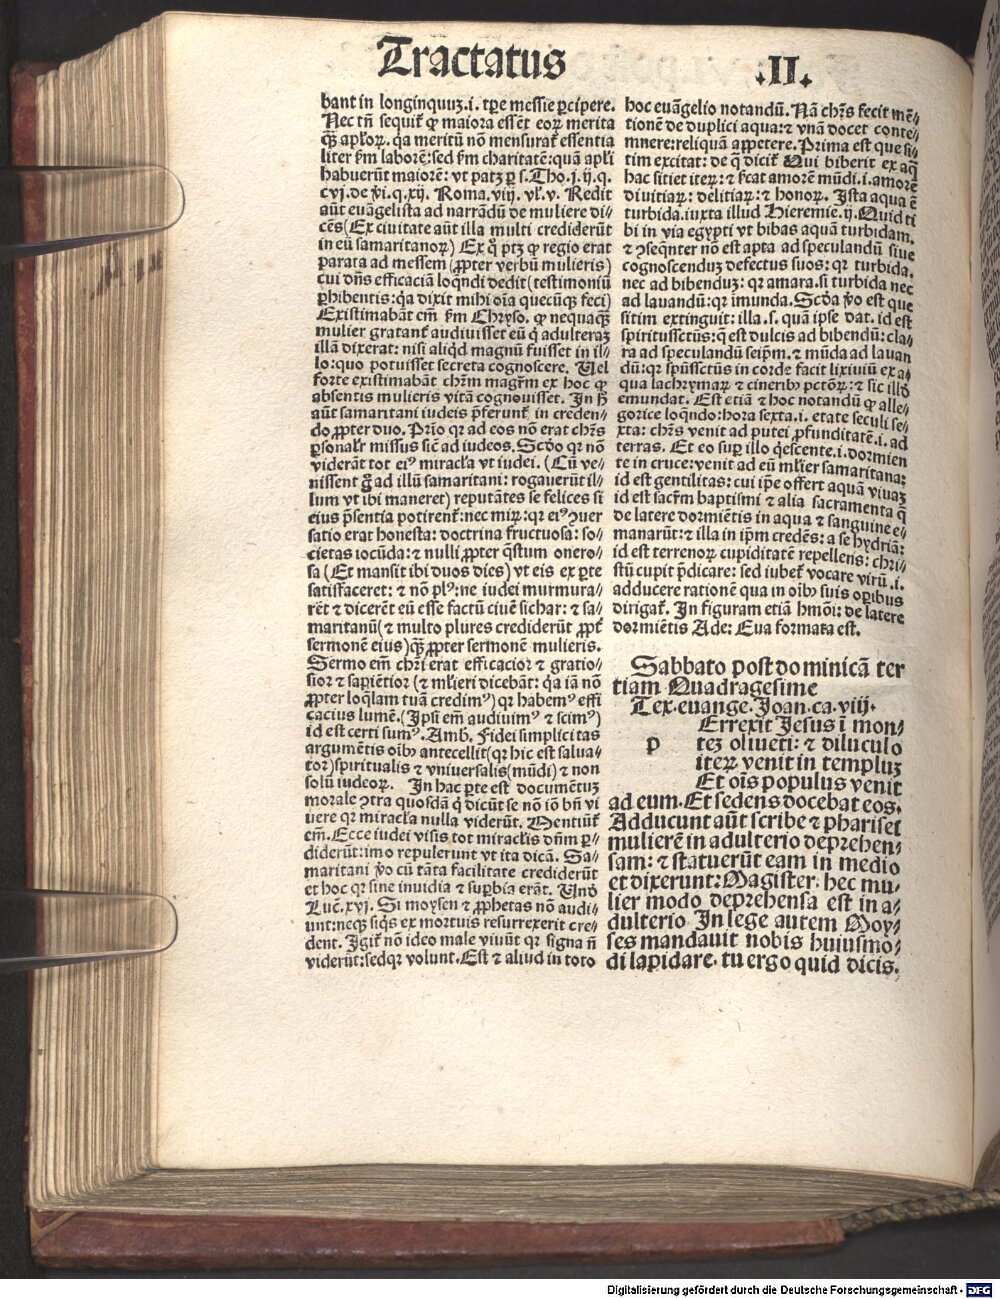 Tractatus
.II.
bant in longinquuꝫ.i. tꝑe messie ꝑcipere.
Nec tñ sequit᷑ ꝙ maiora essēt eoꝝ merita
ꝙ̄ꝫ apl̓oꝝ. q̇a meritū nō mensurat᷑ essentia
liter ẜm laborē:sed ẜm charitatē:quā apl̓i
habuerūt maiorē: vt patꝫ ꝑ s.Tho.j.ij.q.
cvj.de v̓i.q.xij. Roma.viij. vl̓.v. Redit
aūt euāgelista ad narrādū de muliere di-
cēs(Ex ciuitate aūt illa multi crediderūt
in eū samaritanoꝝ) Ex q̊ ptꝫ ꝙ regio erat
parata ad messem (ꝓpter verbū mulieris)
cui dn̄s efficaciā loq̄ndi dedit(testimoniū
ꝑhibentis:q̇a dixit mihi oīa quecūqꝫ feci)
Existimabāt em̄ ẜm Chryso. ꝙ nequaꝙ̄ꝫ
mulier gratant᷑ audiuisset eū q̇ adulteraꝫ
illā dixerat: nisi aliq̇d magnū fuisset in il-
lo:quo potuisset secreta cognoscere. Uel
forte existimabāt chr̄m magr̄m ex hoc ꝙ
absentis mulieris vitā cognouisset. In ħ
aūt samaritani iudeis p̄ferunt᷑ in creden-
do ꝓpter duo. Prīo qꝛ ad eos nō erat chr̄s
ꝑsonalr̓ missus sic̄ ad iudeos. Scd̓o qꝛ nō
viderāt tot eiꝰ miracl̓a vt iudei. (Cū ve-
nissent g̊ ad illū samaritani: rogauerūt il-
lum vt ibi maneret) reputātes se felices si
eius p̄sentia potirent᷑:nec miꝝ:qꝛ eiꝰ ꝯuer
satio erat honesta: doctrina fructuosa: so-
cietas iocūda: ⁊ nulli ꝓpter q̄stum onero-
sa (Et mansit ibi duos dies) vt eis ex ꝑte
satisfaceret: ⁊ nō plꝰ:ne iudei murmura-
rēt ⁊ dicerēt eū esse factū ciuē sichar: ⁊ sa-
maritanū(⁊ multo plures crediderūt ꝓpt᷑
sermonē eius)ꝙ̄ꝫ ꝓpter sermonē mulieris.
Sermo em̄ chr̄i erat efficacior ⁊ gratio-
sior ⁊ sapiētior (⁊ ml̓ieri dicebāt: q̇a iā nō
ꝓpter loq̄lam tuā credimꝰ) qꝛ habemꝰ effi
cacius lumē.(Ipsi em̄ audiuimꝰ ⁊ scimꝰ)
id est certi sumꝰ. Amb. Fidei simplicitas
argumētis oībꝰ antecellit(qꝛ hic est salua-
tor)spiritualis ⁊ vniuersalis(mūdi) ⁊ non
solū iudeoꝝ. In hac ꝑte est documētuꝫ
morale ꝯtra quosdā q̇ dicūt se nō iō bn̄ vi
uere qꝛ miracl̓a nulla viderūt. Mentiūt᷑
em̄. Ecce iudei visis tot miracl̓is dn̄m ꝑ-
diderūt:imo repulerunt vt ita dicā. Sa-
maritani v̓o cū tāta facilitate crediderūt
et hoc qꝛ sine inuidia ⁊ suꝑbia erāt. Un̄
Luc̄.xvj. Si moysen ⁊ ꝓphetas nō audi-
unt:neqꝫ siq̇s ex mortuis resurrexerit cre-
dent. Igit᷑ nō ideo male viuūt qꝛ signa n̄
viderūt:sed qꝛ volunt. Est ⁊ aliud in toto
hoc euāgelio notandū. Nā chr̄s fecit mē-
tionē de duplici aqua:⁊ vnā docet conte-
mnere:reliquā appetere. Prima est que si-
tim excitat: de q̄ dicit᷑ Qui biberit ex aq̄
hac sitiet iteꝝ: ⁊ ſ̓cat amorē mūdi.i.amorē
diuitiaꝝ: delitiaꝝ: ⁊ honoꝝ. Ista aqua ē
turbida.iuxta illud Hieremie.ij.Quid ti
bi in via egypti vt bibas aquā turbidam.
⁊ ꝯseq̄nter nō est apta ad speculandū siue
cognoscenduꝫ defectus suos: qꝛ turbida.
nec ad bibenduꝫ: qꝛ amara.si turbida nec
ad lauandū:qꝛ imunda. Scd̓a v̓o est que
sitim extinguit: illa.s. quā ipse dat. id est
spiritussctūs:q̄ est dulcis ad bibendū: cla-
ra ad speculandū seip̄m. ⁊ mūda ad lauan
dū: qꝛ sp̄ussctūs in corde facit lixiuiū ex a-
qua lachrymaꝝ ⁊ cineribꝰ pctōꝝ: ⁊ sic illd̓
emundat. Est etiā ⁊ hoc notandū ꝙ alle-
gorice loq̄ndo: hora sexta.i. etate seculi se-
xta: chr̄s venit ad putei ꝓfunditatē.i. ad
terras. Et eo suꝑ illo q̇escente.i.dormien
te in cruce:venit ad eū ml̓ier samaritana:
id est gentilitas: cui ip̄e offert aquā viuaꝫ
id est sacr̄m baptismi ⁊ alia sacramenta q̄
de latere dormiētis in aqua ⁊ sanguine e-
manarūt:⁊ illa in ip̄m credēs: a se hydriā:
id est terrenoꝝ cupiditatē repellens: chri-
stū cupit p̄dicare: sed iubet᷑ vocare virū .i.
adducere rationē qua in oībꝰ suis oꝑibus
dirigat᷑. In figuram etiā hmōi: de latere
dormiētis Ade: Eua formata est.
Sabbato post dominicā ter
tiam Quadragesime
Tex.euange.Joan.ca.viij.
p
Errexit Jesus ī mon-
teꝫ oliueti: ⁊ diluculo
iteꝝ venit in templuꝫ
Et oīs populus venit
ad eum. Et sedens docebat eos.
Adducunt aūt scribe ⁊ pharisei
mulierē in adulterio deprehen-
sam: ⁊ statuerūt eam in medio
et dixerunt: Magister. hec mu-
lier modo deprehensa est in a-
dulterio In lege autem Moy-
ses mandauit nobis huiusmo-
di lapidare. tu ergo quid dicis.
Digitalisierung gefördert durch die Deutsche Forschungsgemeinschaft - DFG